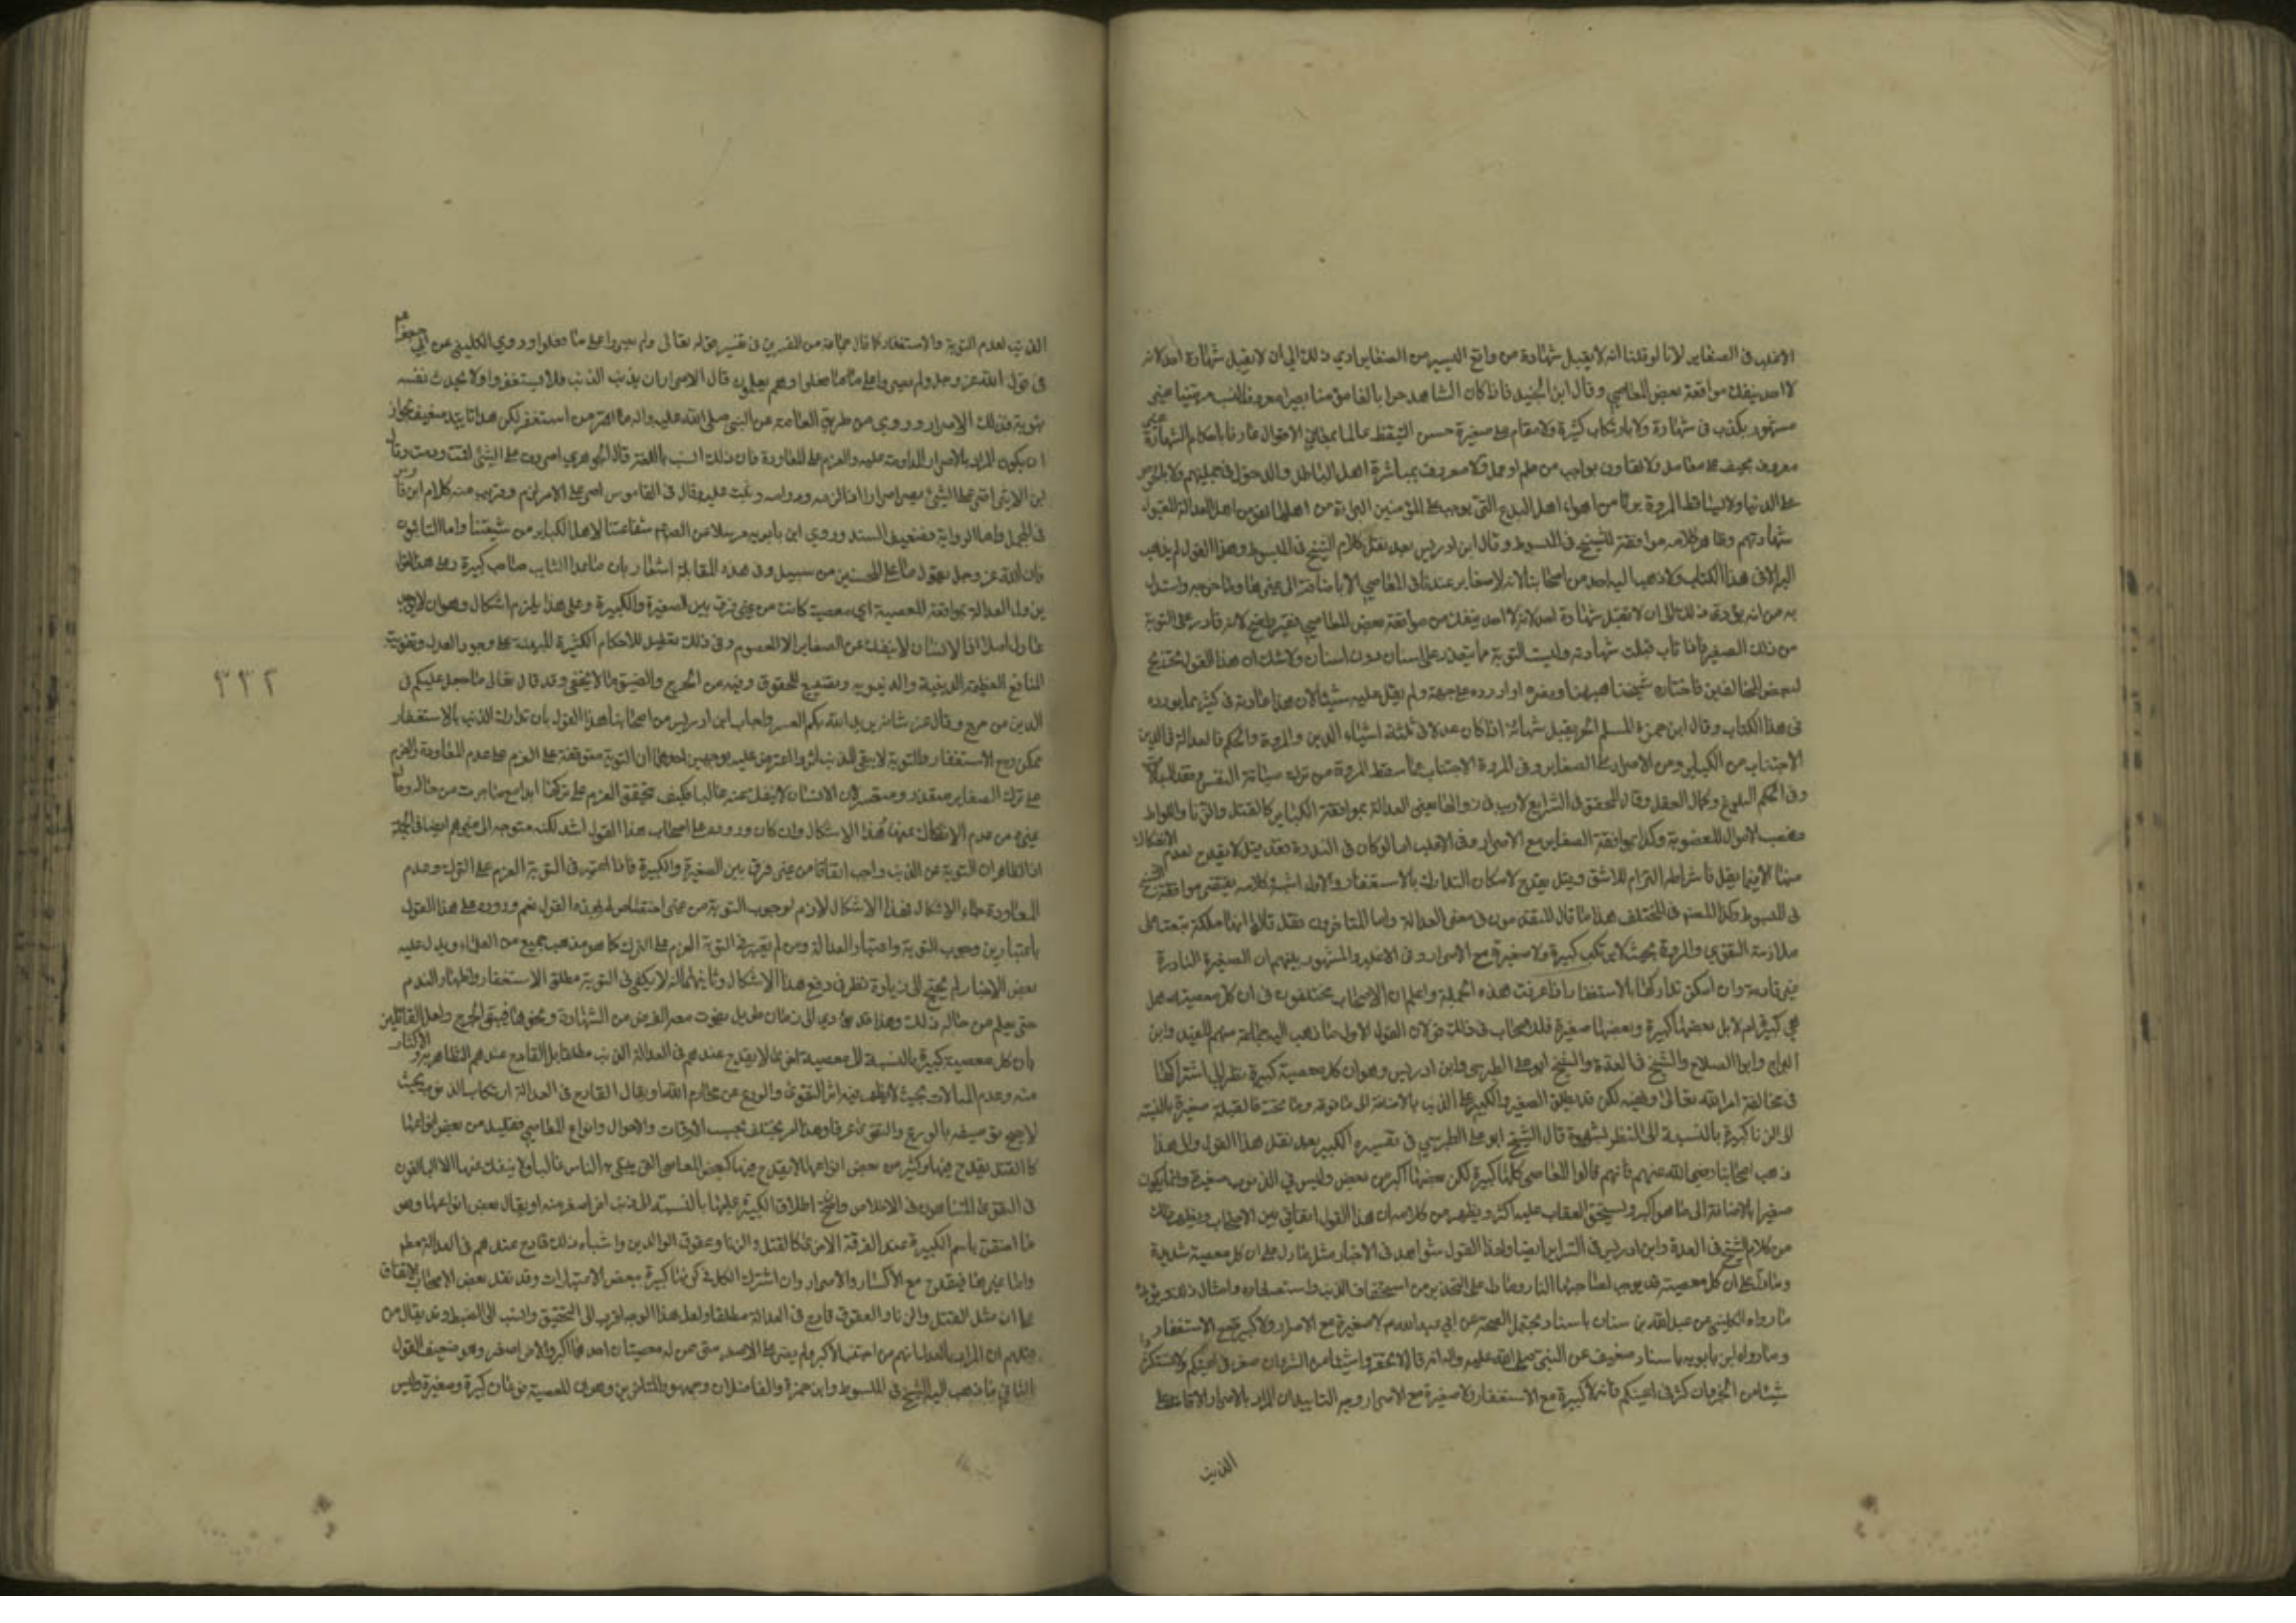 الاغلب في الصغاير لانا لو قلنا انه لا يقبل شهادة من واقع اليسير من الصغاير ادي ذلك الي ان لا يقبل شهادة احد لانه
لا احد ينفك من مواقعة بعض المعاصي وقال ابن الجنيد فاذا كان الشاهد حرا بالغا مؤمنا بصيرا معروف النسب مرضيا غير
مشهور بكذب في شهادة ولا بارتكاب كبيرة ولا مقام على صغيرة حسن التيقظ عالما بمعاني الاقوال عارفا باحكام الشهادة غير
معروف بحيف على معامل ولا تهاون بواجب من علم او عمل ولا معروف بمباشرة اهل الباطل والدخول في جملتهم ولا بالحرص
على الدنيا ولا بساقط المروة بريئا من اهواء اهل البدع التي يوجب على المؤمنين البراءة من اهلها فهو من اهل العدالة المقبول
شهادتهم وظاهر كلامه موافقة للشيخ في المبسوط وقال ابن ادريس بعد نقل كلام الشيخ في المبسوط وهذا القول لم يذهب
اليه الا في هذا الكتاب ولا ذهب اليه احد من اصحابنا لانه لا صغاير عندنا في المعاصي الا بالاضافة الى غيرها وما خرجه واستدل
به من انه يؤدي ذلك الى ان لا تقبل شهادة احد لانه لا احد ينفك من مواقعة بعض المعاصي فغير واضح لانه قادر على التوبة
من ذلك الصغيرة فاذا تاب قبلت شهادته وليست التوبة مما يتعذر على انسان دون انسان ولا شك ان هذا القول تخريج
لبعض المخالفين فاختاره شيخنا هيهنا ونصره واورده على جهته ولم يقل عليه شيئا لان هذا عادته في كثير مما يورده
في هذا الكتاب وقال ابن حمزة المسلم الحر يقبل شهادته اذا كان عدلا في ثلثة اشياء الدين والمروة والحكم فالعدالة في الدين
الاجتناب من الكباير ومن الاصرار على الصغاير وفي المروة الاجتناب عما يسقط المروة من ترك صيانة النفس وفقد المبالاة
وفي الحكم البلوغ وكمال العقل وقال المحقق في الشرايع لا ريب في زوالها يعني العدالة بمواقعة الكباير كالقتل والزنا واللواط
وغصب الاموال المعصومة وكذا بمواقعة الصغاير مع الاصرار وفي الاغلب اما لو كان في الندرة فقد قيل لا يقدح لعدم الانفكاك
منها الا فيما يقل فاشتراطه التزام للاشق وقيل يقدح لامكان التدارك بالاستغفار والاول اشبه وكلامه يقتضي موافقة الشيخ
في المبسوط وكذا المصنف في المختلف هذا ما قال المتقدمون في معنى العدالة واما المتاخرون فقد قالوا انها ملكة تبعث على
ملازمة التقوي والمروة بحيث لا يرتكب كبيرة ولا صغيرة مع الاصرار وفي الاغلب والمشهور بينهم ان الصغيرة النادرة
غير قادحة وان امكن تداركها بالاستغفار اذا عرفت هذه الجملة واعلم ان الاصحاب مختلفون في ان كل معصية هل
هي كبيرة ام لا بل بعضها كبيرة وبعضها صغيرة فللاصحاب في ذلك قولان القول الاول ما ذهب اليه جماعة منهم المفيد وابن
البراج وابو الصلاح والشيخ في العدة والشيخ ابو على الطبرسي وابن ادريس وهو ان كل معصية كبيرة نظرا الى اشتراكها
في مخالفة امر الله تعالى ونهيه لكن قد يطلق الصغير والكبير على الذنب بالاضافة الى ما فوقه وما تحته فالقبلة صغيرة بالنسبة
الى الزنا كبيرة بالنسبة الى النظر بشهوة قال الشيخ ابو على الطبرسي في تفسيره الكبير بعد نقل هذا القول والى هذا
ذهب اصحابنا رضي الله عنهم فانهم قالوا المعاصي كلها كبيرة لكن بعضها اكبر من بعض وليس في الذنوب صغيرة وانما يكون
صغيرا بالاضافة الى ما هو اكبر ويستحق العقاب عليه اكثر ويظهر من كلامه ان هذا القول اتفاقي بين الاصحاب ويظهر ذلك
من كلام الشيخ في العدة وابن ادريس في السراير ايضا ولهذا القول شواهد في الاخبار مثل ما دل على ان كل معصية شديدة
وما دل على ان كل معصية قد يوجب لصاحبها النار وما دل على التحذير من استحقار الذنب واستصغاره وامثال ذلك
ما رواه الكليني عن عبد الله بن سنان باسناد يحتمل الصحة عن ابي عبد الله عم لا صغيرة مع الاصرار ولا كبيرة مع الاستغفار
وما رواه ابن بابويه باسناد ضعيف عن النبي صلى الله عليه واله انه قال لا تحقروا شيئا من الشر وان صغر في اعينكم ولا تستكثروا
شيئا من الخير وان كثر في اعينكم فانه لا كبيرة مع الاستغفار ولا صغيرة مع الاصرار وجه التاييد ان المراد بالاصرار الاقامة على
الذنب
الذنب لعدم التوبة والاستغفار كما قال جماعة من المفسرين في تفسير قوله تعالى ولم يصروا على ما فعلوا وروي الكليني عن ابي جعفر عم
في قول الله عز وجل ولم يصروا على ما فعلوا وهم يعلمون قال الاصرار ان يذنب الذنب فلا يستغفر ولا يحدث نفسه
بتوبة فذلك الاصرار وروي من طريق العامة عن النبي صلى الله عليه واله ما اصر من استغفر لكن هذا تاييد ضعيف لجواز
ان يكون المراد بالاصرار المداومة عليه والعزم على المعاودة فان ذلك انسب باللغة قال الجوهري اصررت على الشئ اقمت ودمت وقال
ابن الاثير اصر على الشئ يصر اصرارا اذا لزمه وداومه وثبت عليه وقال في القاموس اصر على الامر لزم وقريب منه كلام ابن فارس
في المجمل واما الرواية فضعيف السند وروي ابن بابويه مرسلا عن الصادق عم شفاعتنا لاهل الكباير من شيعتنا واما التائبون
فان الله عز وجل يقول ما على المحسنين من سبيل وفي هذه المقابلة اشعار بان ما عدا التايب صاحب كبيرة وعلى هذا القول
يزول العدالة بمواقعة المعصية اي معصية كانت من غير فرق بين الصغيرة والكبيرة وعلى هذا يلزم اشكال وهو ان لا يوجد
عادل اصلا اذ الانسان لا ينفك عن الصغاير الا المعصوم وفي ذلك تعطيل للاحكام الكثيرة المبتنية على وجود العدل وتفويت
المنافع العظيمة الدينية والدنيوية وتضييع للحقوق وفيه من الحرج والضيق ما لا يخفى وقد قال تعالى ما جعل عليكم في
الدين من حرج وقال عز شانه يريد الله بكم اليسر واجاب ابن ادريس من اصحابنا هذا القول بان تدارك الذنب بالاستغفار
ممكن ومع الاستغفار والتوبة لا يبقى للذنب اثر واعترض عليه بوجهين احدهما ان التوبة متوقفة على العزم على عدم المعاودة والعزم
على ترك الصغاير متعذر او متعسر لان الانسان لا ينفك عنه غالبا فكيف يتحقق العزم على تركها ابدا مع ما جرت من حاله وحال
غيره من عدم الانفكاك عنها وهذا الاشكال وان كان وروده على اصحاب هذا القول اشد لكنه متوجه الى غيرهم ايضا في الجملة
اذ الظاهر ان التوبة عن الذنب واجب اتفاقا من غير فرق بين الصغيرة والكبيرة فاذا اعتبر في التوبة العزم على الترك وعدم
المعاودة جاء الاشكال فهذا الاشكال لازم لوجوب التوبة من غير اختصاص له بهذا القول نعم وروده على هذا القول
باعتبارين وجوب التوبة واعتبار العدالة ومن لم يعتبر في التوبة العزم على الترك كما هو مذهب جميع من العلماء ويدل عليه
بعض الاخبار لم يحتج الى زيادة نظر في دفع هذا الاشكال وثانيهما انه لا يكفي في التوبة مطلق الاستغفار واظهار الندم
حتى يعلم من حاله ذلك وهذا قد يؤدي الى زمان طويل يفوت معه الغرض من الشهادة ونحوها فيبقى الحرج ولعل القائلين
بان كل معصية كبيرة بالنسبة الى معصية اخرى لا يقدح عندهم في العدالة الذنب مطلقا بل القادح عندهم التظاهر به والاكثار
منه وعدم المبالات بحيث لا يظهر فيه اثر التقوى والورع عن محارم الله او يقال القادح في العدالة ارتكاب الذنوب بحيث
لا يصح توصيفه بالورع والتقوى عرفا وهذا امر يختلف بحسب الاوقات والاحوال وانواع المعاصي فقليل من بعض انواعها
كالقتل يقدح فيها وكثير من بعض انواعها لا يقدح فيها كبعض المعاصي التي يبتلى به الناس غالبا ولا ينفك عنها الا البالغون
في التقوى المتناهون في الاخلاص واضح اطلاق الكبيرة عليها بالنسبة الى ذنب اخر اصغر منه او يقال بعض انواعها وهو
ما اختص باسم الكبيرة عند الفرقة الاخرى كالقتل والزنا وعقوق الوالدين واشباه ذلك قادح عندهم في العدالة مطلقا
واما غيرها فيقدح مع الاكثار والاصرار وان اشترك الكل في كونها كبيرة ببعض الاعتبارات وقد نقل بعض الاصحاب الاتفاق
على ان مثل القتل والزنا والعقوق قادح في العدالة مطلقا ولعل هذا الوجه اقرب الى التحقيق وانسب الى الضبط وقد يقال من
جانبهم ان المراد بالعدل انهم من اجتنب الاكبر ولم يصر على الاصغر متى عن له معصيتان احدهما اكبر والاخر اصغر وهو ضعيف القول
الثاني ما ذهب اليه الشيخ في المبسوط وابن حمزة والفاضلان وجمهور المتاخرين وهو ان المعصية نوعان كبيرة وصغيرة وليس
٣٣٢